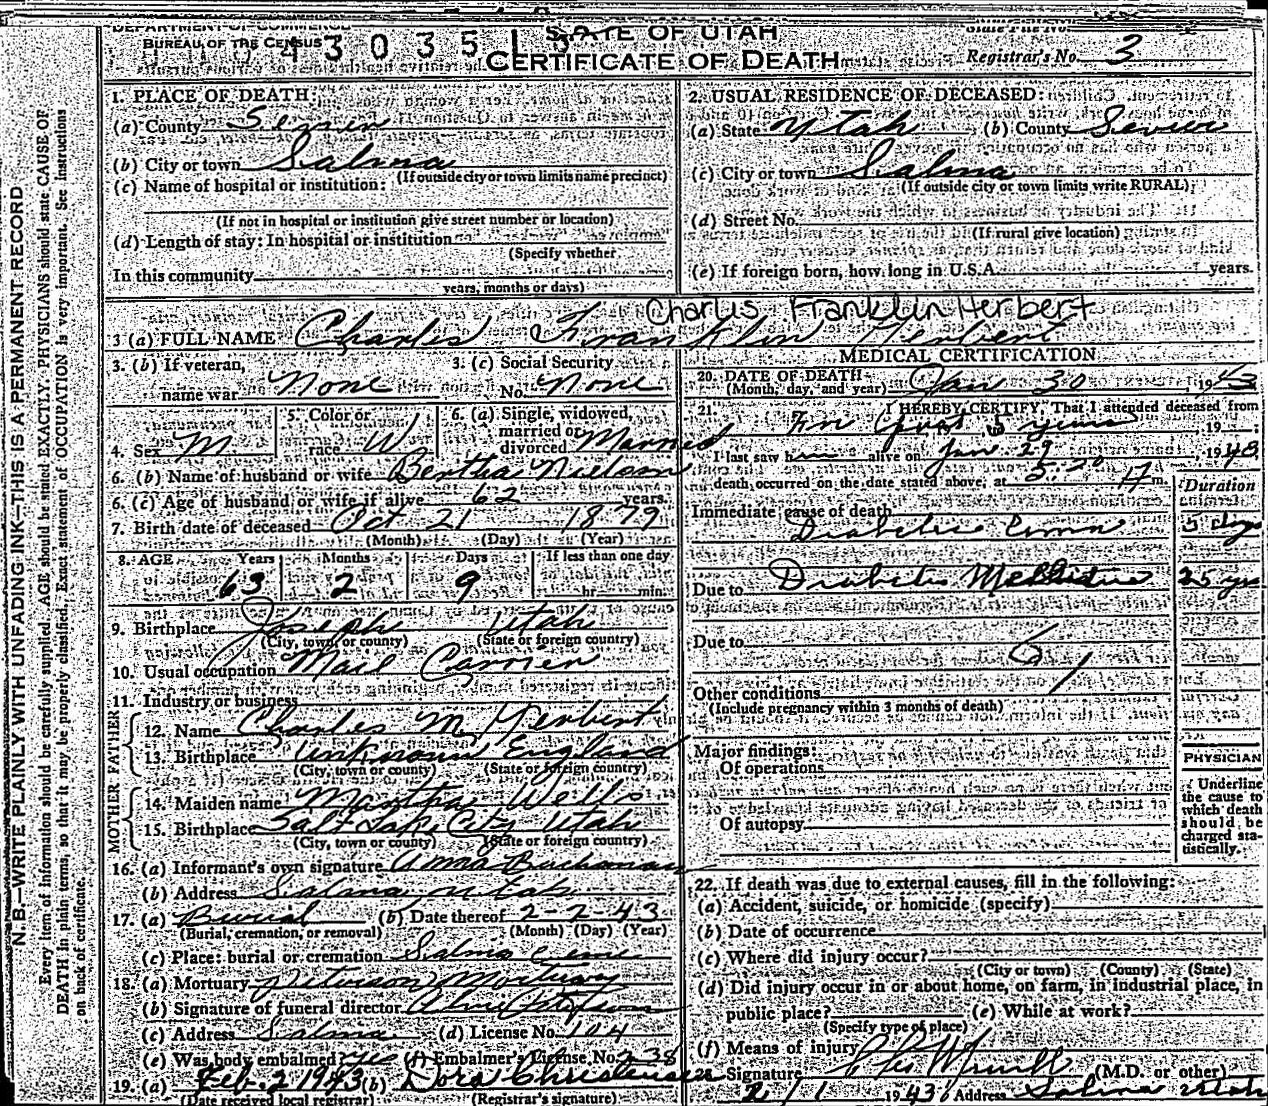 BUREAU OF THE CENSUS
STATE OF UTAH
CERTIFICATE OF DEATH
Registrar's No. 3
N. B.—WRITE PLAINLY WITH UNFADING INK—THIS IS A PERMANENT RECORD
Every item of information should be carefully supplied. AGE should be stated EXACTLY. PHYSICIANS should state CAUSE OF
DEATH in plain terms, so that it may be properly classified. Exact statement of OCCUPATION is very important. See instructions
on back of certificate.
1. PLACE OF DEATH:
(a) County Sevier
(b) City or town Salina
(If outside city or town limits name precinct)
(c) Name of hospital or institution:
(If not in hospital or institution give street number or location)
(d) Length of stay: In hospital or institution
(Specify whether
In this community
years, months or days)
2. USUAL RESIDENCE OF DECEASED:
(a) State Utah (b) County Sevier
(c) City or town Salina
(If outside city or town limits write RURAL)
(d) Street No.
(If rural give location)
(e) If foreign born, how long in U.S.A. years.
Charlis Franklin Herbert
3 (a) FULL NAME Charles Franklin Herbert
3. (b) If veteran,
name war None
3. (c) Social Security
No. None
4. Sex M
5. Color or
race W
6. (a) Single, widowed,
married or
divorced Married
6. (b) Name of husband or wife Bertha Nielson
6. (c) Age of husband or wife if alive 62 years.
7. Birth date of deceased Oct 21 1879
(Month) (Day) (Year)
8. AGE Years Months Days If less than one day
63 2 9 hr. min.
9. Birthplace Joseph Utah
(City, town or county) (State or foreign country)
10. Usual occupation Mail Carrier
11. Industry or business
FATHER
12. Name Charles M. Herbert
13. Birthplace unknown England
(City, town or county) (State or foreign country)
MOTHER
14. Maiden name Martha Wells
15. Birthplace Salt Lake City Utah
(City, town or county) (State or foreign country)
16. (a) Informant's own signature Anna Buchanan
(b) Address Salina Utah
17. (a) Burial (b) Date thereof 2-2-43
(Burial, cremation, or removal) (Month) (Day) (Year)
(c) Place: burial or cremation Salina Cem
18. (a) Mortuary Peterson Mortuary
(b) Signature of funeral director
(c) Address Salina (d) License No. 104
(e) Was body embalmed? yes (f) Embalmer's License No. 238
19. (a) Feb. 2 1943 (b) Dora Christensen
(Date received local registrar) (Registrar's signature)
MEDICAL CERTIFICATION
20. DATE OF DEATH—
(Month, day, and year) Jan 30, 1943
21. I HEREBY CERTIFY, That I attended deceased from
For past 5 years, 19
I last saw him alive on Jan 29, 1943
death occurred on the date stated above, at 5:20 A m.
Duration
Immediate cause of death
Diabetic Coma 5 days
Due to Diabetis Mellitus 25 yrs
Due to
61
Other conditions
(Include pregnancy within 3 months of death)
Major findings:
Of operations
Of autopsy
PHYSICIAN
Underline
the cause to
which death
should be
charged sta-
tistically.
22. If death was due to external causes, fill in the following:
(a) Accident, suicide, or homicide (specify)
(b) Date of occurrence
(c) Where did injury occur?
(City or town) (County) (State)
(d) Did injury occur in or about home, on farm, in industrial place, in
public place? (e) While at work?
(Specify type of place)
(f) Means of injury
Signature (M.D. or other)
2/1 1943 Address Salina Utah